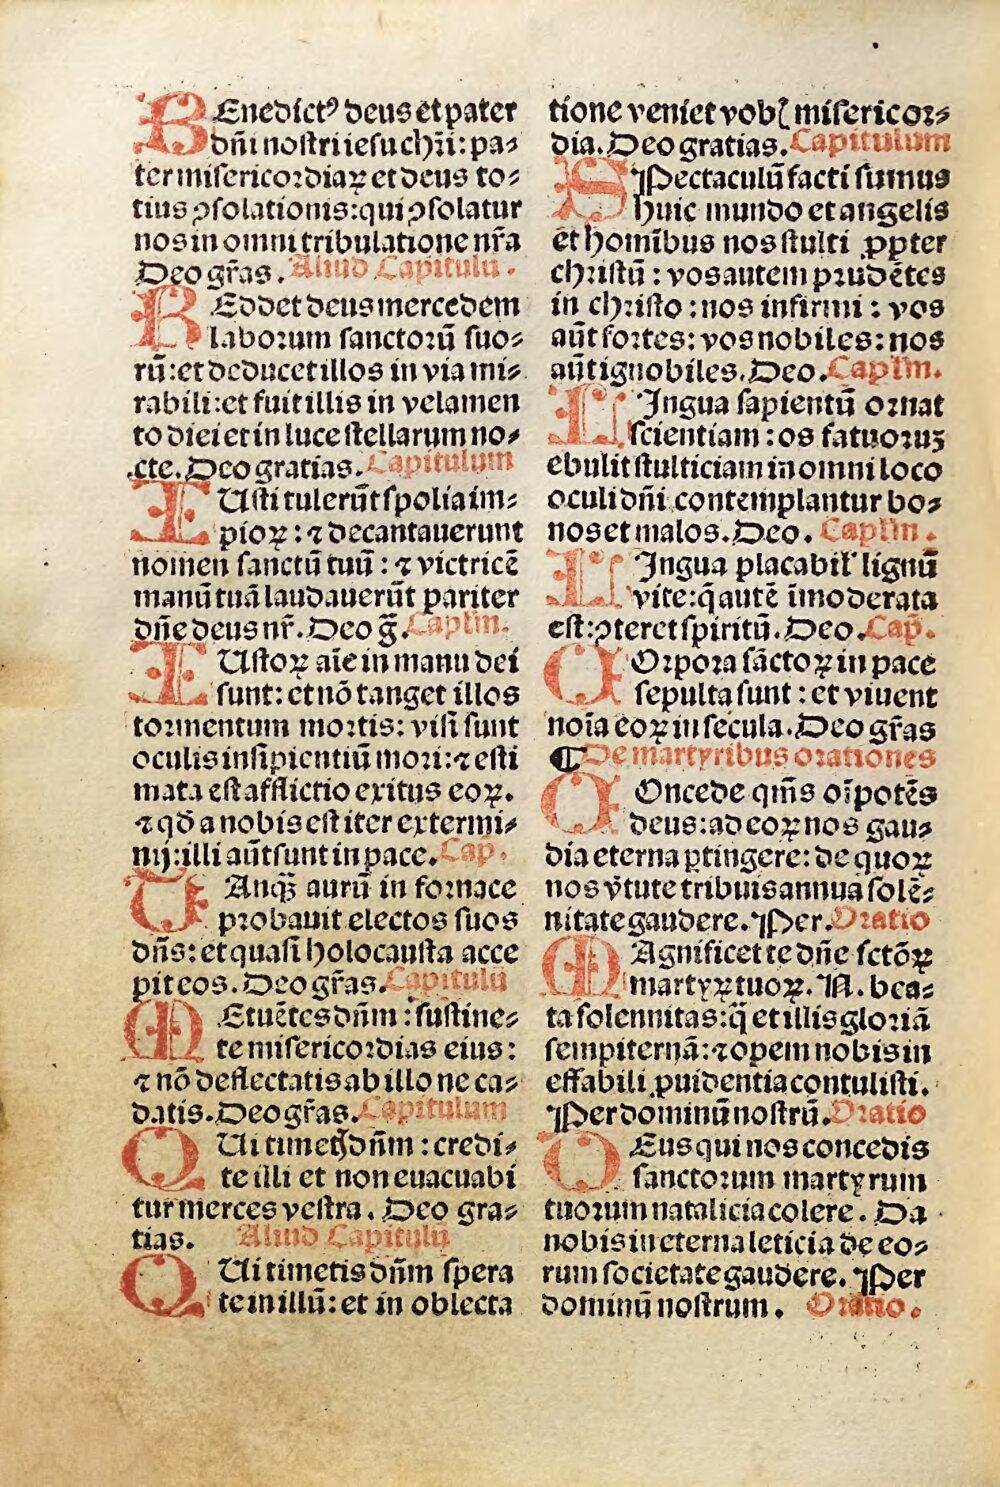 BEnedictꝰ deus et pater
dn̄i nostri iesu chr̄i: pa⸗
ter misericordiaꝝ et deus to⸗
tius ꝯsolationis: qui ꝯsolatur
nos in omni tribulatione nr̄a
Deo gr̄as. Aliud Capitulū.
REddet deus mercedem
laborum sanctorū suo⸗
rū: et deducet illos in via mi⸗
rabili: et fuit illis in velamen
to diei et in luce stellarum no⸗
cte. Deo gratias. Capitulum
IUsti tulerūt spolia im⸗
pioꝝ: ⁊ decantauerunt
nomen sanctū tuū: ⁊ victricē
manū tuā laudauerūt pariter
dn̄e deus nr̄. Deo ḡ. Caplm̄.
IUstoꝝ aīe in manu dei
sunt: et nō tanget illos
tormentum mortis: visi sunt
oculis insipientiū mori: ⁊ esti
mata est afflictio exitus eoꝝ.
⁊ qd̄ a nobis est iter extermi⸗
nij: illi aūt sunt in pace. Cap.
TAnqꝫ aurū in fornace
probauit electos suos
dn̄s: et quasi holocausta acce
pit eos. Deo gr̄as. Capitulū
MEtuētes dn̄m: sustine⸗
te misericordias eius:
⁊ nō deflectatis ab illo ne ca⸗
datis. Deo gr̄as. Capitulum
QUi timetꝭ dn̄m: credi⸗
te illi et non euacuabi
tur merces vestra. Deo gra⸗
tias. Aliud Capitulū
QUi timetis dn̄m spera
te in illū: et in oblecta
tione veniet vobꝭ misericor⸗
dia. Deo gratias. Capitulum
SPectaculū facti sumus
huic mundo et angelis
et homībus nos stulti ꝓpter
christū: vos autem prudētes
in christo: nos infirmi: vos
aūt fortes: vos nobiles: nos
aūt ignobiles. Deo. Caplm̄.
LIngua sapientū ornat
scientiam: os fatuoruꝫ
ebulit stulticiam in omni loco
oculi dn̄i contemplantur bo⸗
nos et malos. Deo. Caplm̄.
LIngua placabil' lignū
vite: q̄ autē īmoderata
est: ꝯteret spiritū. Deo. Cap̄.
COrpora sāctoꝝ in pace
sepulta sunt: et viuent
noīa eoꝝ in secula. Deo gr̄as
¶De martyribus orationes
COncede qm̄s oīpotēs
deus: ad eoꝝ nos gau⸗
dia eterna ꝑtingere: de quoꝝ
nos v̄tute tribuis annua solē⸗
nitate gaudere. Per. Oratio
MAgnificet te dn̄e sctōꝝ
martyꝝ tuoꝝ. N. bea⸗
ta solennitas: q̄ et illis gloriā
sempiternā: ⁊ opem nobis in
effabili ꝓuidentia contulisti.
Per dominū nostrū. Oratio
DEus qui nos concedis
sanctorum martyrum
tuorum natalicia colere. Da
nobis in eterna leticia de eo⸗
rum societate gaudere. Per
dominū nostrum. Oratio.